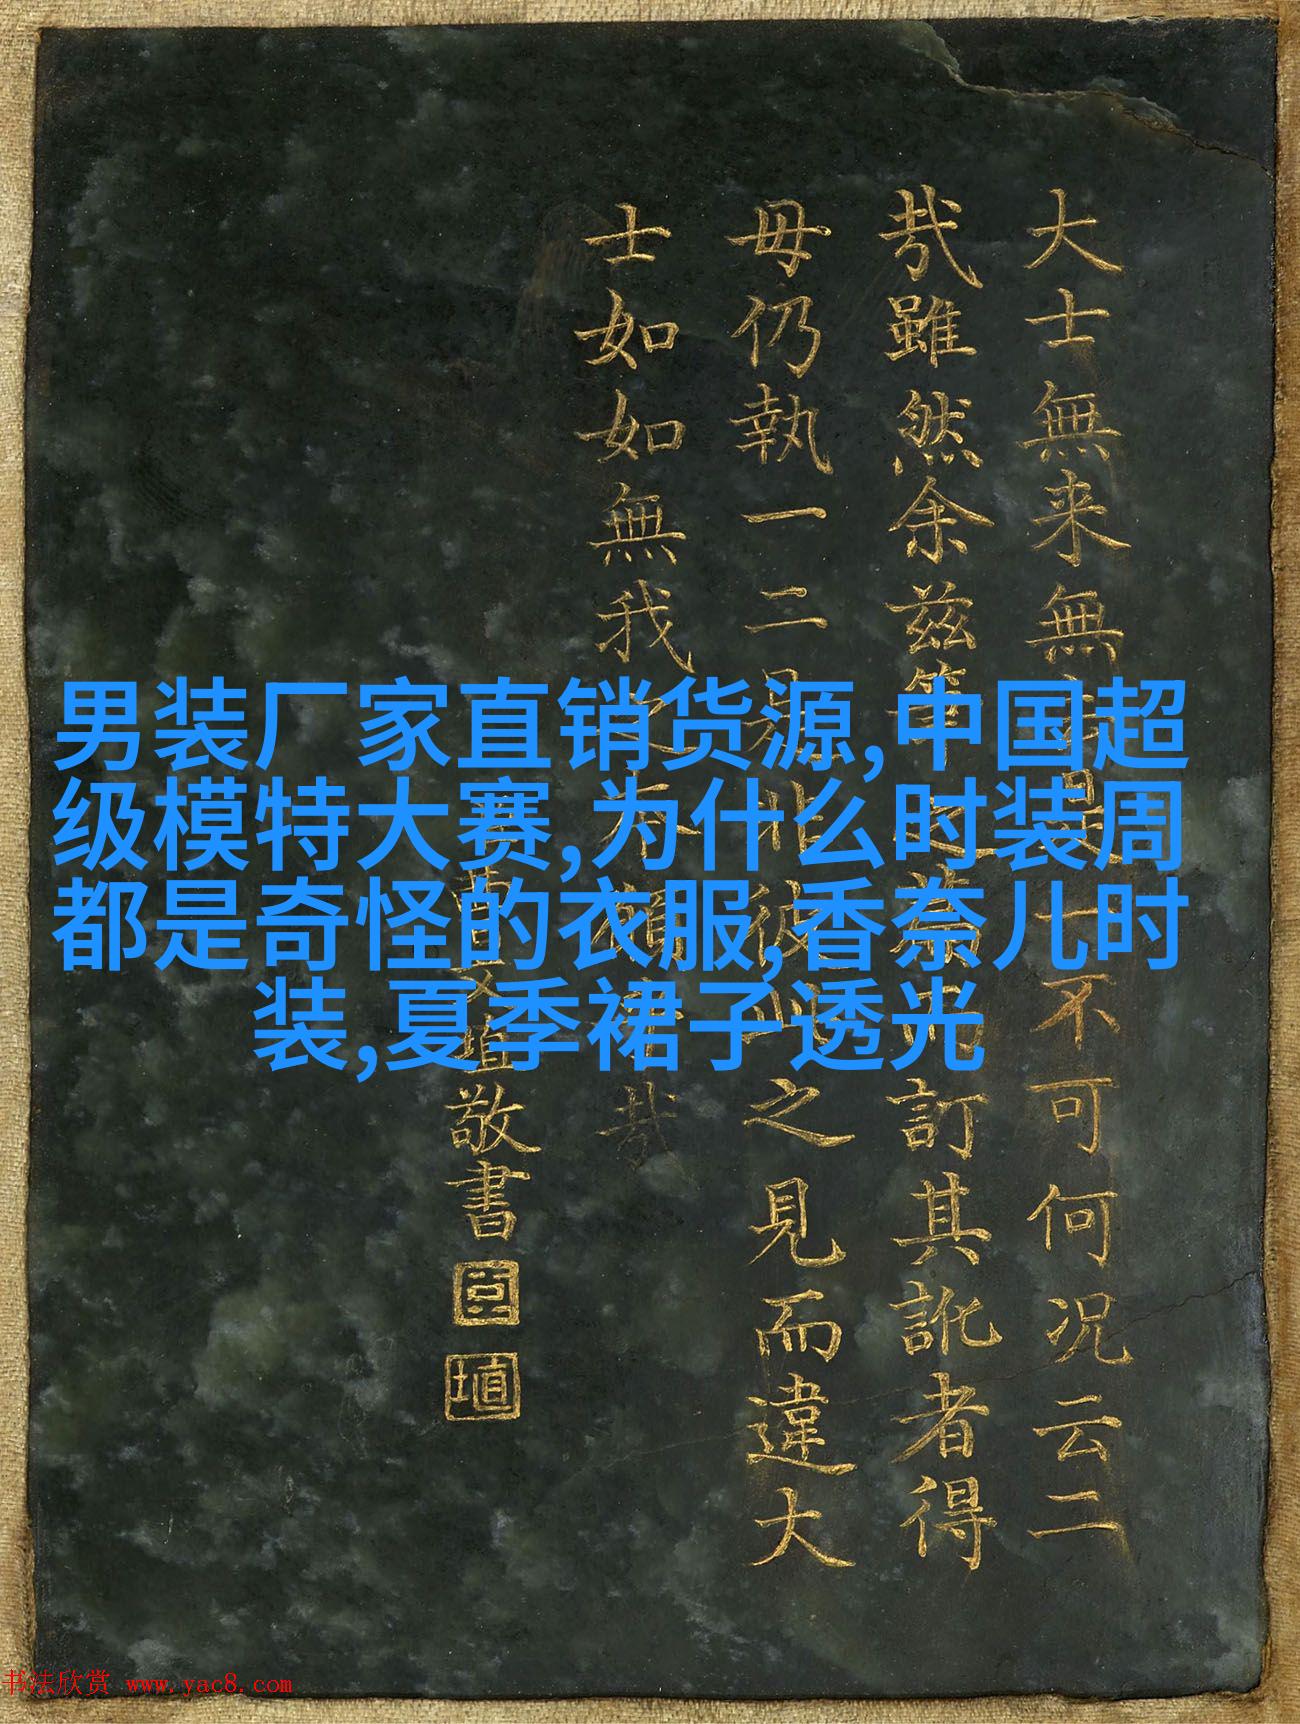 大士無来無去是一不可何况云二
哉雖然余兹笔之訂其訛者得
毋仍執一二是非彼此之見而違大
士如如無我哉
敬書
男装厂家直销货源,中国超
级模特大赛,为什么时装周
都是奇怪的衣服,香奈儿时
装,夏季裙子透光
书法欣赏 www.yac8.com